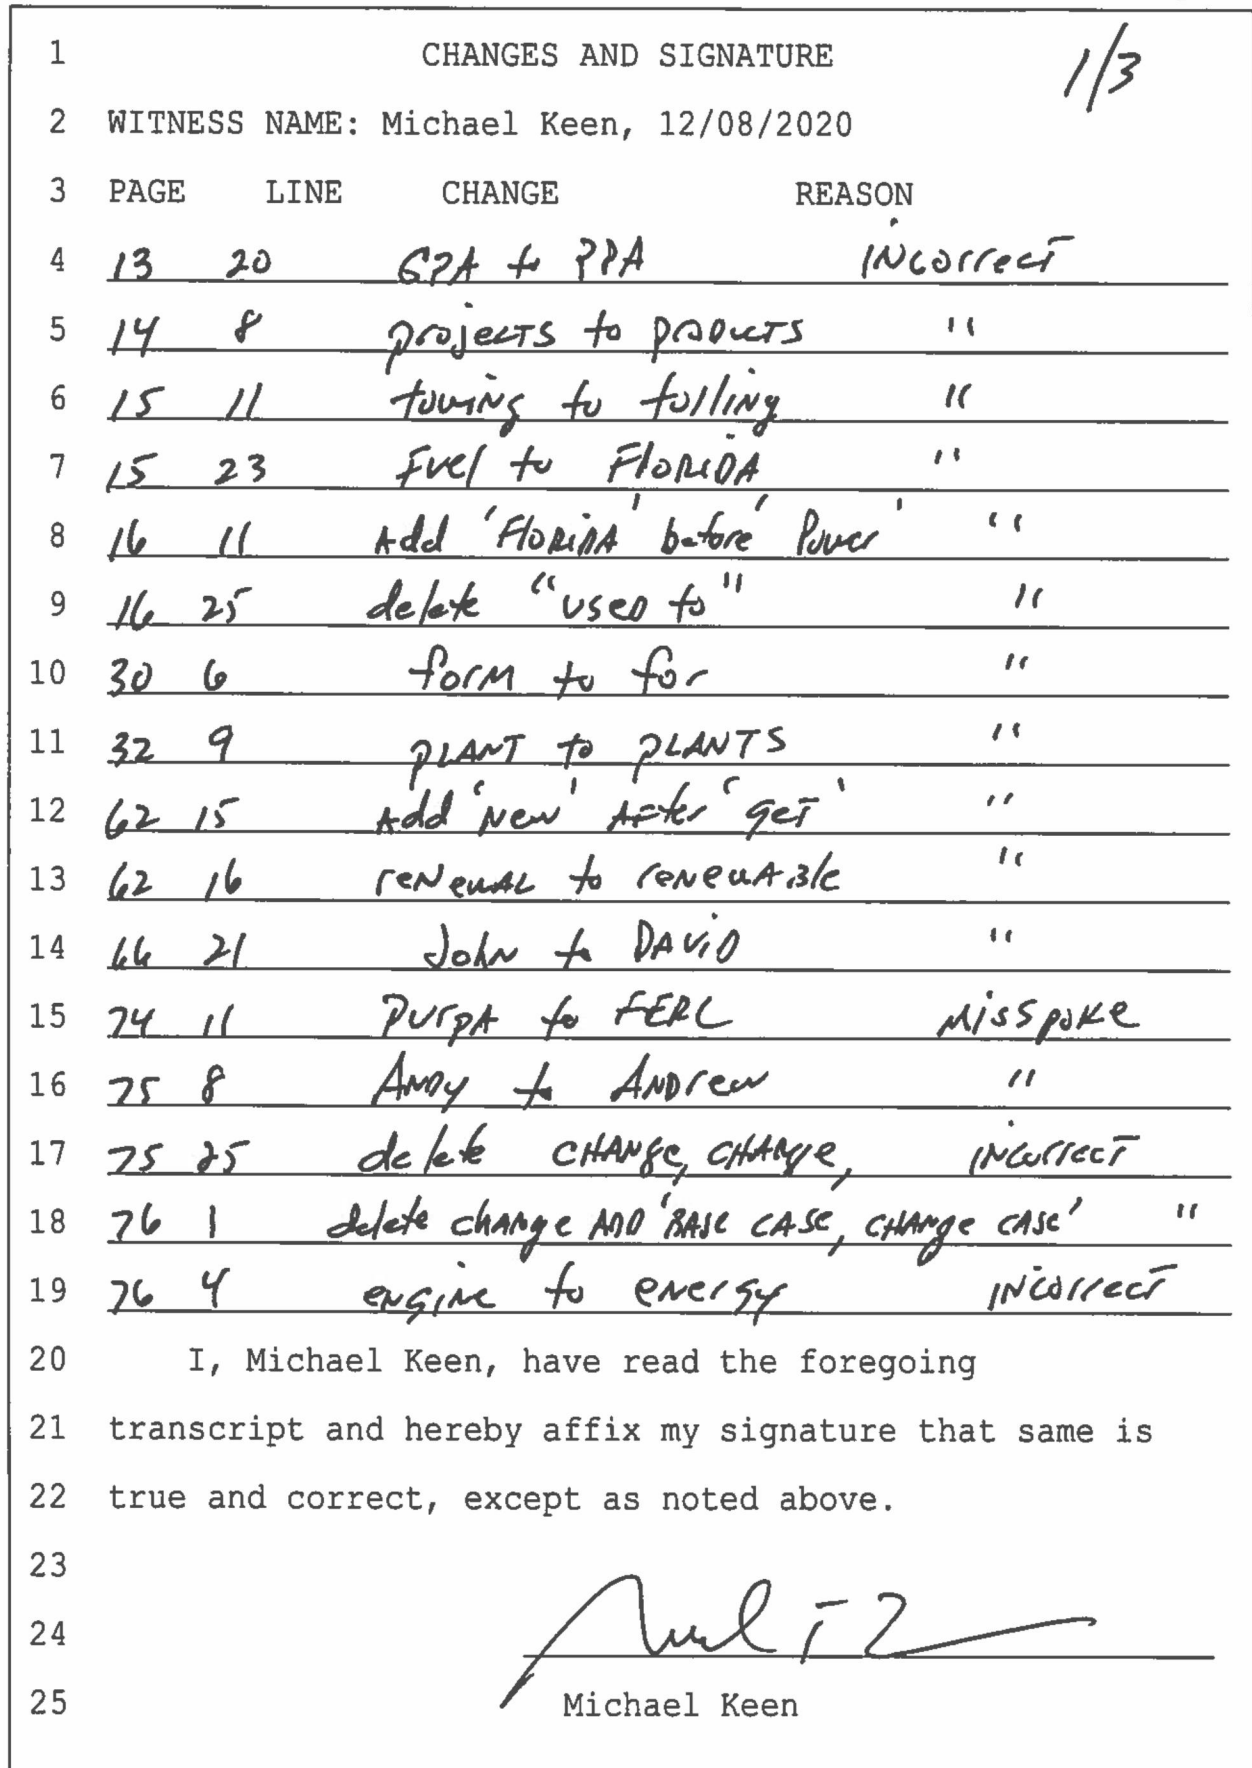 1 CHANGES AND SIGNATURE 1/3
2 WITNESS NAME: Michael Keen, 12/08/2020
3 PAGE LINE CHANGE REASON
4 13 20 GPA to PPA INCORRECT
5 14 8 projects to products "
6 15 11 towing to tolling "
7 15 23 Fuel to FLORIDA "
8 16 11 Add 'FLORIDA' before 'Power' "
9 16 25 delete "used to" "
10 30 6 form to for "
11 32 9 PLANT to PLANTS "
12 62 15 Add 'New' After 'get' "
13 62 16 reNewAL to reNewABle "
14 66 21 John to DAVID "
15 74 11 PurpA to FERC Misspoke
16 75 8 ANDY to ANDrew "
17 75 25 delete CHANge, CHANge, INCorrecT
18 76 1 delete change ADD 'BASE CASE, CHANge CASE' "
19 76 4 engine to energy INCorrecT
20 I, Michael Keen, have read the foregoing
21 transcript and hereby affix my signature that same is
22 true and correct, except as noted above.
23
24
25 Michael Keen